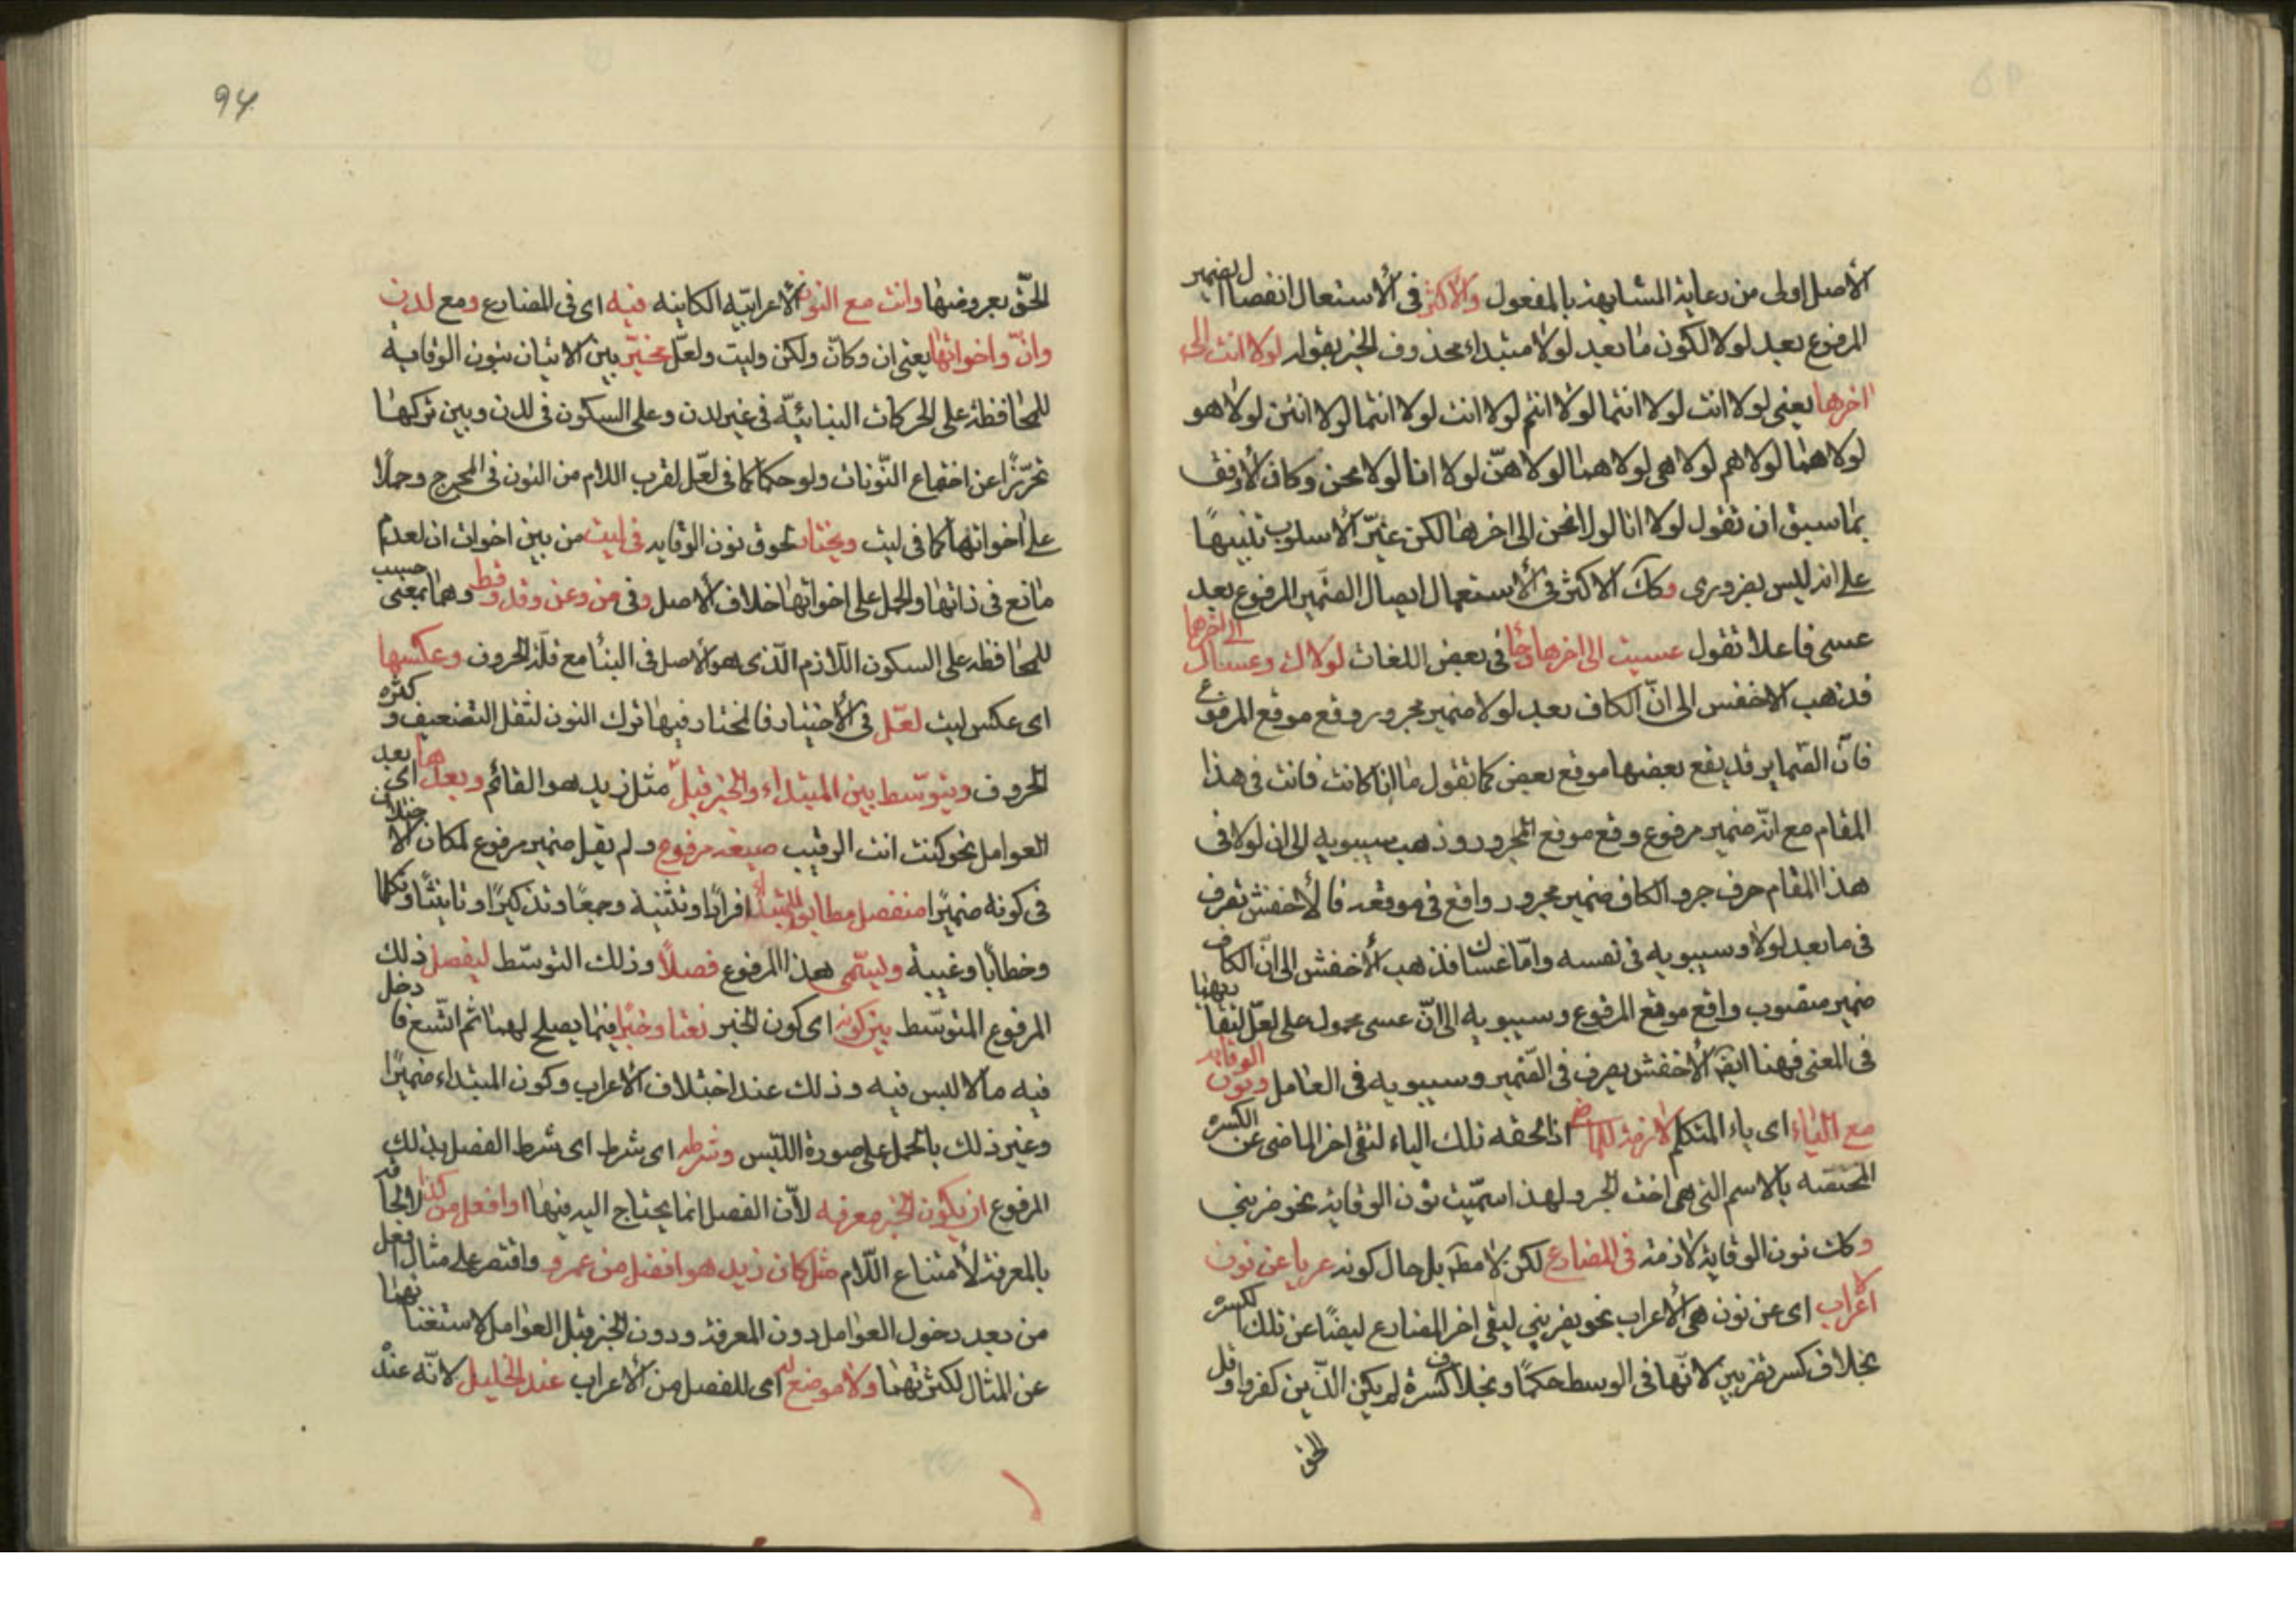 الأصل اولى من رعاية المشابهة بالمفعول والأكثر فى الأستعمال انفصال الضمير
المرفوع بعد لولا لكون ما بعد لولا مبتداء محذوف الخبر يقول لولا انت الى
اخرها يعنى لولا انت لولا انتما لولا انتم لولا انت لولا انتما لولا انتن لولا هو
لولا هما لولا هم لولا هى لولا هما لولا هنّ لولا انا لولا نحن وكان الأوفق
بما سبق ان تقول لولا انا لولا نحن الى اخرها لكن غيّر الأسلوب تنبيهًا
على انه ليس بضرورى وكان الاكثر فى الأستعمال ايصال الضمير المرفوع بعد
عسى فاعلا تقول عسيت الى اخرها وجا فى بعض اللغات لولاك وعساك الى اخرها
فذهب الاخفش الى انّ الكاف بعد لولا ضمير مجرور وقع موقع المرفوع
فانّ الضماير قد يقع بعضها موقع بعض كما تقول ما انا كانت فانت فى هذا
المقام مع انّه ضمير مرفوع وقع موقع المجرور وذهب سيبويه الى ان لولا فى
هذا المقام حرف جر والكاف ضمير مجرور واقع فى موقعه فالأخفش تصرف
فى ما بعد لولا وسيبويه فى نفسه وامّا عساك فذهب الأخفش الى انّ الكاف
ضمير منصوب واقع موقع المرفوع وسيبويه الى انّ عسى محمول على لعلّ لتقاربهما
فى المعنى فههنا ايضا الأخفش يصرف فى الضمير وسيبويه فى العامل ونون الوقاية
مع الياء اى ياء المتكلم لازمة للماضى اذا لحقه تلك الياء لتقى اخر الماضى عن الكسره
المختصّه بالاسم التى هى اخت الجر ولهذا سمّيت نون الوقاية نحو ضربنى
وكانت نون الوقاية لازمة فى المضارع لكن لا مط بل حال كونه عريا عن نون
الأعراب اى عن نون هى الأعراب نحو يضربنى ليقى اخر المضارع ايضًا عن تلك الكسره
بخلاف كسر تضربين لانّها فى الوسط حكمًا وبخلاف كسرة لم يكن الّذين كفروا وقل
الحق
94
الحقّ بعروضها وانت مع النون الأعرابيّه الكاينه فيه اى فى المضارع ومع لدن
وانّ واخواتها يعنى ان وكانّ ولكن وليت ولعلّ مخيّر بين الاتيان بنون الوقاية
للمحافظة على الحركات البنائيّة فى غير لدن وعلى السكون فى لدن وبين تركها
تحرّزًا عن اجتماع النّونات ولو حكما كما فى لعّل لقرب اللام من النون فى المخرج وحملًا
على اخواتها كما فى ليت ويختار لحوق نون الوقايه فى ليت من بين اخوات ان لعدم
مانع فى ذاتها والحمل على اخواتها خلاف الأصل وفى من وعن وقد وقط وهما بمعنى حسب
للمحافظه على السكون اللّازم الّذى هو الأصل فى البنأ مع قلّة الحروف وعكسها
اى عكس ليت لعّل فى الأختيار فالمختار فيها ترك النون لثقل التضعيف وكثره
الحروف ويتوسّط بين المبتداء والخبر قبل مثل زيد هو القائم وبعدها اى بعد
العوامل نحو كنت انت الرقيب صيغة مرفوع ولم يقل ضمير مرفوع لمكان الاختلاف
فى كونه ضميرًا منفصل مطابق للمبتدأ افرادًا وتثنية وجمعًا وتذكيرًا وتانيثًا وتكلما
وخطابًا وغيبة ويسمّى هذا المرفوع فصلًا وذلك التوسّط ليفصل ذلك
المرفوع المتوسّط بين كونه اى كون الخبر نعتا وخبرًا فيما يصلح لهما ثم اتّسع فادخل
فيه مالا لبس فيه وذلك عند اختلاف الأعراب وكون المبتداء ضميرًا
وغير ذلك بالحمل على صورة اللّبس وشرطه اى شرط اى شرط الفصل بذلك
المرفوع ان يكون الخبر معرفه لأنّ الفصل انما يحتاج اليه فيها او افعل من كذا لالحاقه
بالمعرفة لأمتناع اللّام مثل كان زيد هو افضل من عمرو واقتصر على مثال افعل
من بعد دخول العوامل دون المعرفة ودون الخبر قبل العوامل لاستغنائهما
عن المثال لكثرتهما ولا موضع له اى للفصل من الأعراب عند الخليل لانّه عنده